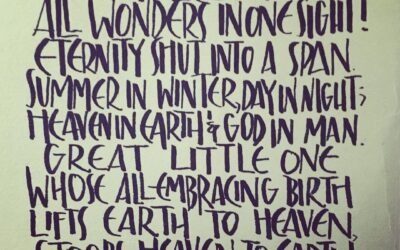 ALL WONDERS IN ONE SIGHT!
ETERNITY SHUT INTO A SPAN.
SUMMER IN WINTER, DAY IN NIGHT;
HEAVEN IN EARTH! & GOD IN MAN.
GREAT LITTLE ONE
WHOSE ALL-EMBRACING BIRTH
LIFTS EARTH TO HEAVEN,
STOOPS HEAVEN TO EARTH!